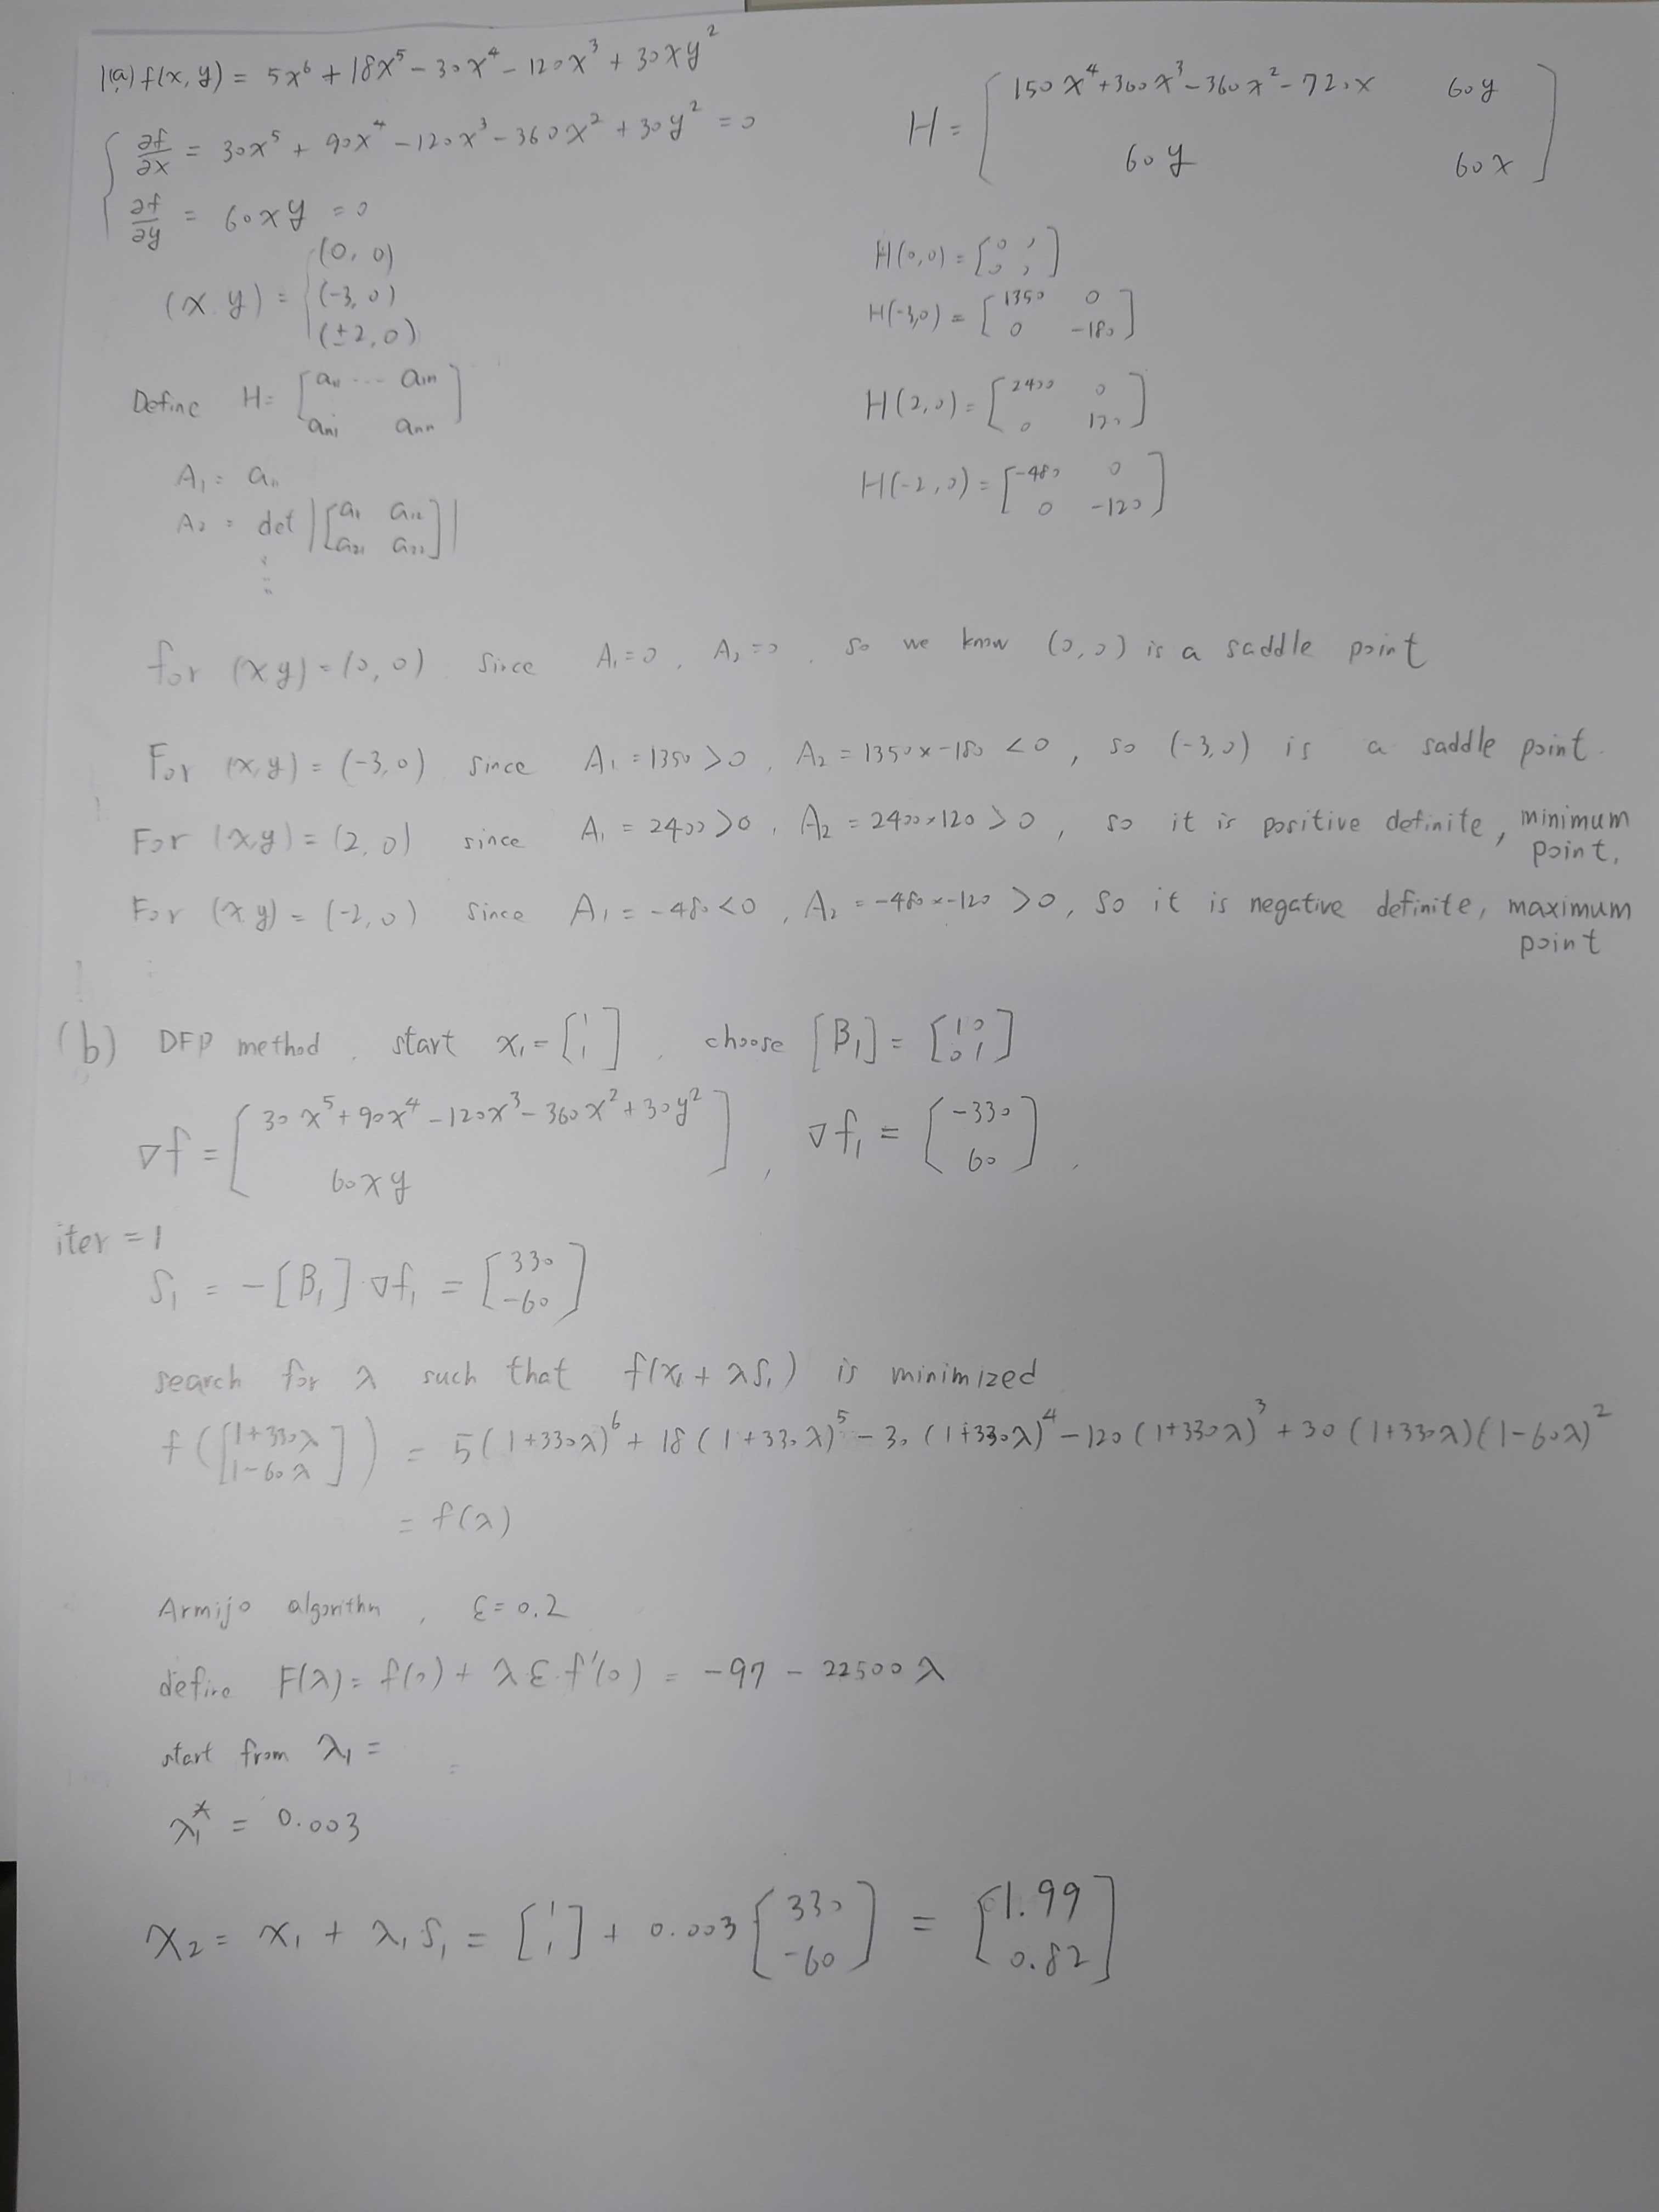 1(a) f(x, y) = 5x⁶ + 18x⁵ - 30x⁴ - 120x³ + 30xy²
∂f/∂x = 30x⁵ + 90x⁴ - 120x³ - 360x² + 30y² = 0
∂f/∂y = 60xy = 0
(x y) = { (0, 0)
(-3, 0)
(±2, 0)
Define H = [a₁₁ ... a₁n
an₁ ann]
A₁ = a₁₁
A₂ = det |[a₁ a₁₂
a₂₁ a₂₂]|
⋮
H = [150x⁴+360x³-360x²-720x 60y
60y 60x]
H(0,0) = [0 0
0 0]
H(-3,0) = [1350 0
0 -180]
H(2,0) = [2400 0
0 120]
H(-2,0) = [-480 0
0 -120]
for (x y) = (0, 0) since A₁=0, A₂=0, so we know (0,0) is a saddle point
For (x,y) = (-3,0) since A₁=1350>0, A₂=1350×-180<0, so (-3,0) is a saddle point.
For (x,y) = (2,0) since A₁=2400>0, A₂=2400×120>0, so it is positive definite, minimum
point.
For (x y) = (-2,0) since A₁=-480<0, A₂=-480×-120>0, so it is negative definite, maximum
point
(b) DFP method, start x₁=[1
1], choose [B₁]=[1 0
0 1]
∇f = [30x⁵+90x⁴-120x³-360x²+30y²
60xy], ∇f₁ = [-330
60],
iter = 1
S₁ = -[B₁]∇f₁ = [330
-60]
search for λ such that f(x₁+λS₁) is minimized
f([1+330λ
1-60λ]) = 5(1+330λ)⁶+18(1+330λ)⁵-30(1+330λ)⁴-120(1+330λ)³+30(1+330λ)(1-60λ)²
= f(λ)
Armijo algorithm, ε=0.2
define F(λ)=f(0)+λε·f'(0)=-97-22500λ
start from λ₁=
λ₁*=0.003
x₂=x₁+λ₁S₁=[1
1]+0.003[330
-60]=[1.99
0.82]